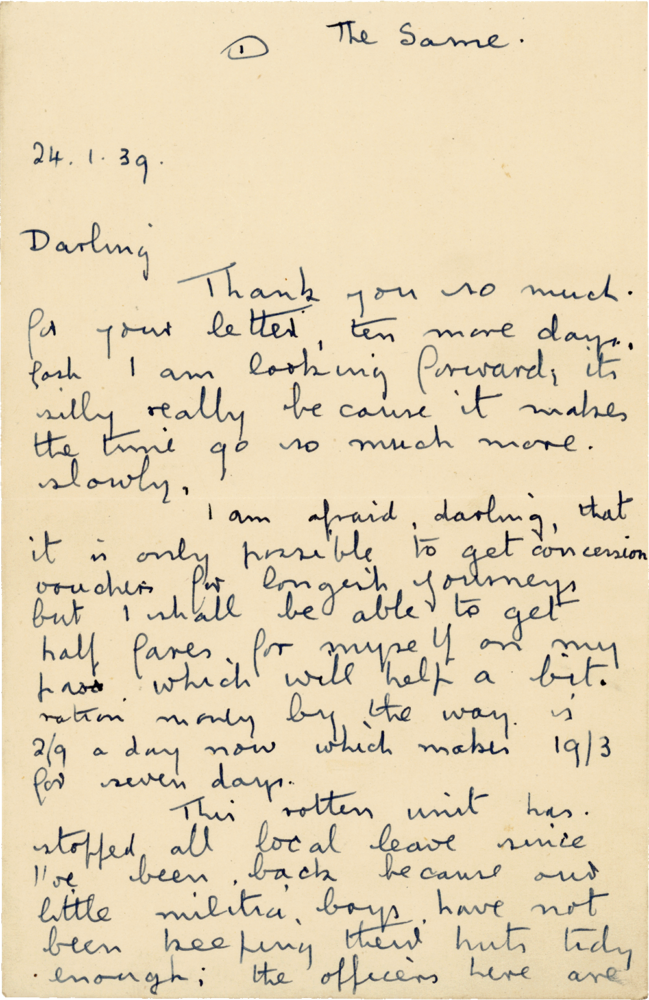 ① The Same.
24.1.39.
Darling
Thank you so much.
for your letter, ten more days,
gosh I am looking forward; its
silly really because it makes
the time go so much more.
slowly,
I am afraid, darling, that
it is only possible to get concession
vouchers for longish journeys
but I shall be able to get
half fares for myself on my
pass which will help a bit.
ration money by the way is
2/9 a day now which makes 19/3
for seven days.
This rotten unit has.
stopped all local leave since
I've been back because our
little militia boys have not
been keeping their huts tidy
enough; the officers here are